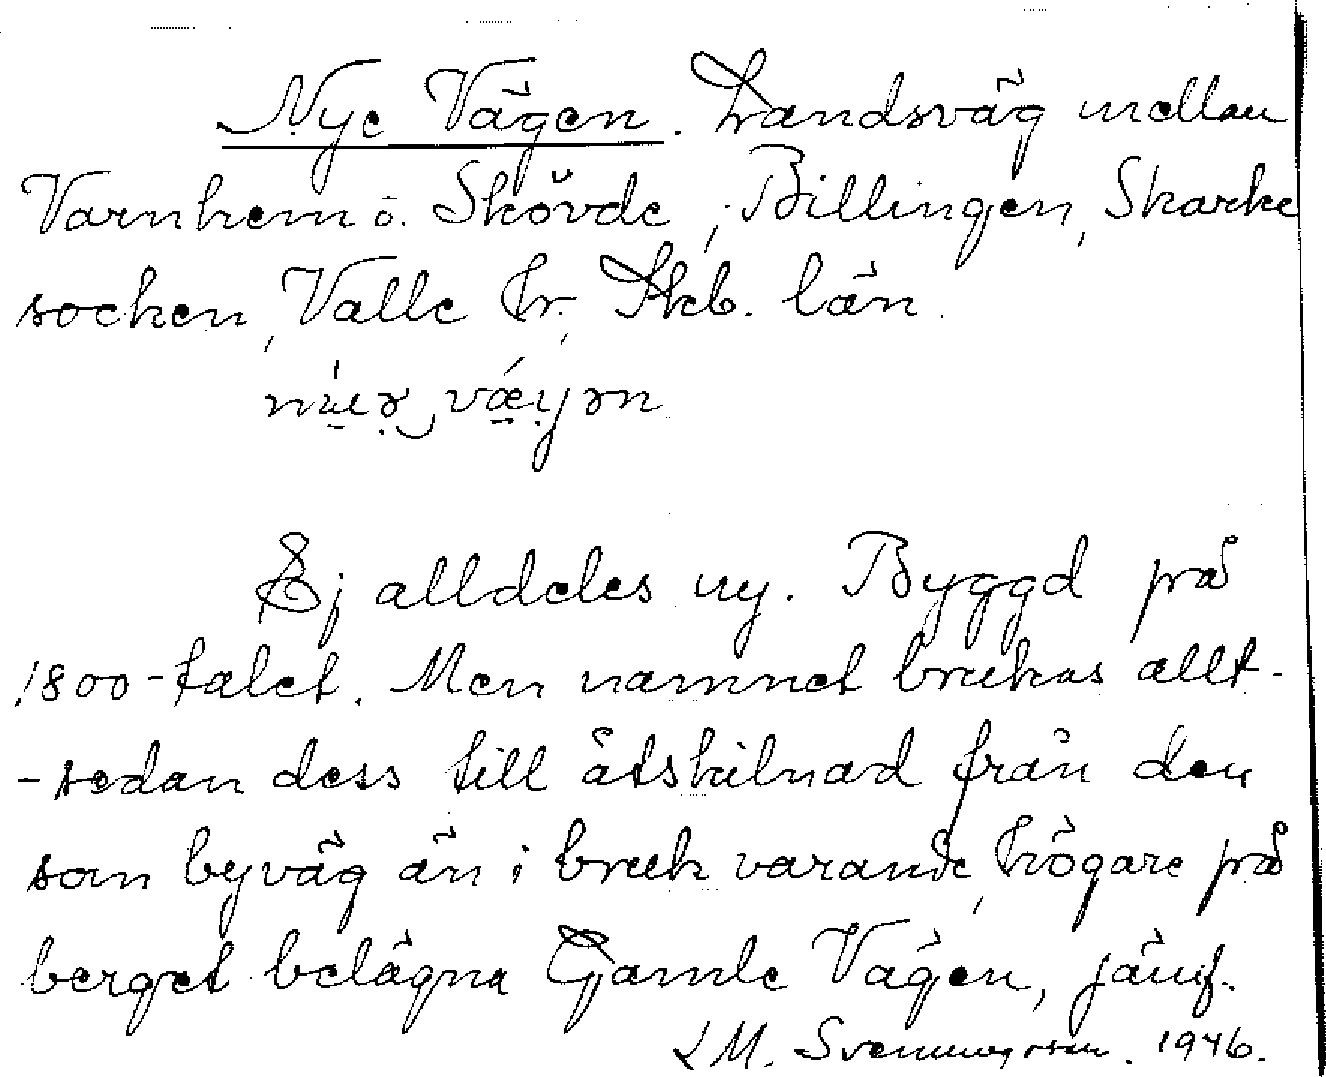 Nye Vägen. Landsväg mellan
Varnhem o. Skövde, Billingen, Skarke
socken, Valle hr, Skb. län.
väɣən
Ej alldeles ny. Byggd på
1800-talet. Men namnet brukas allt-
-sedan dess till åtskilnad från den
som byväg än i bruk varande, högare på
berget belägna Gamle Vägen, jämf.
LM. Svenungsson. 1946.